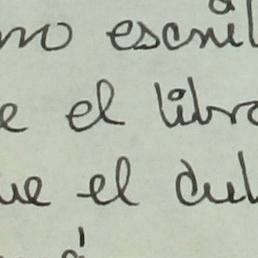 mo escri
e el libro
ue el cul